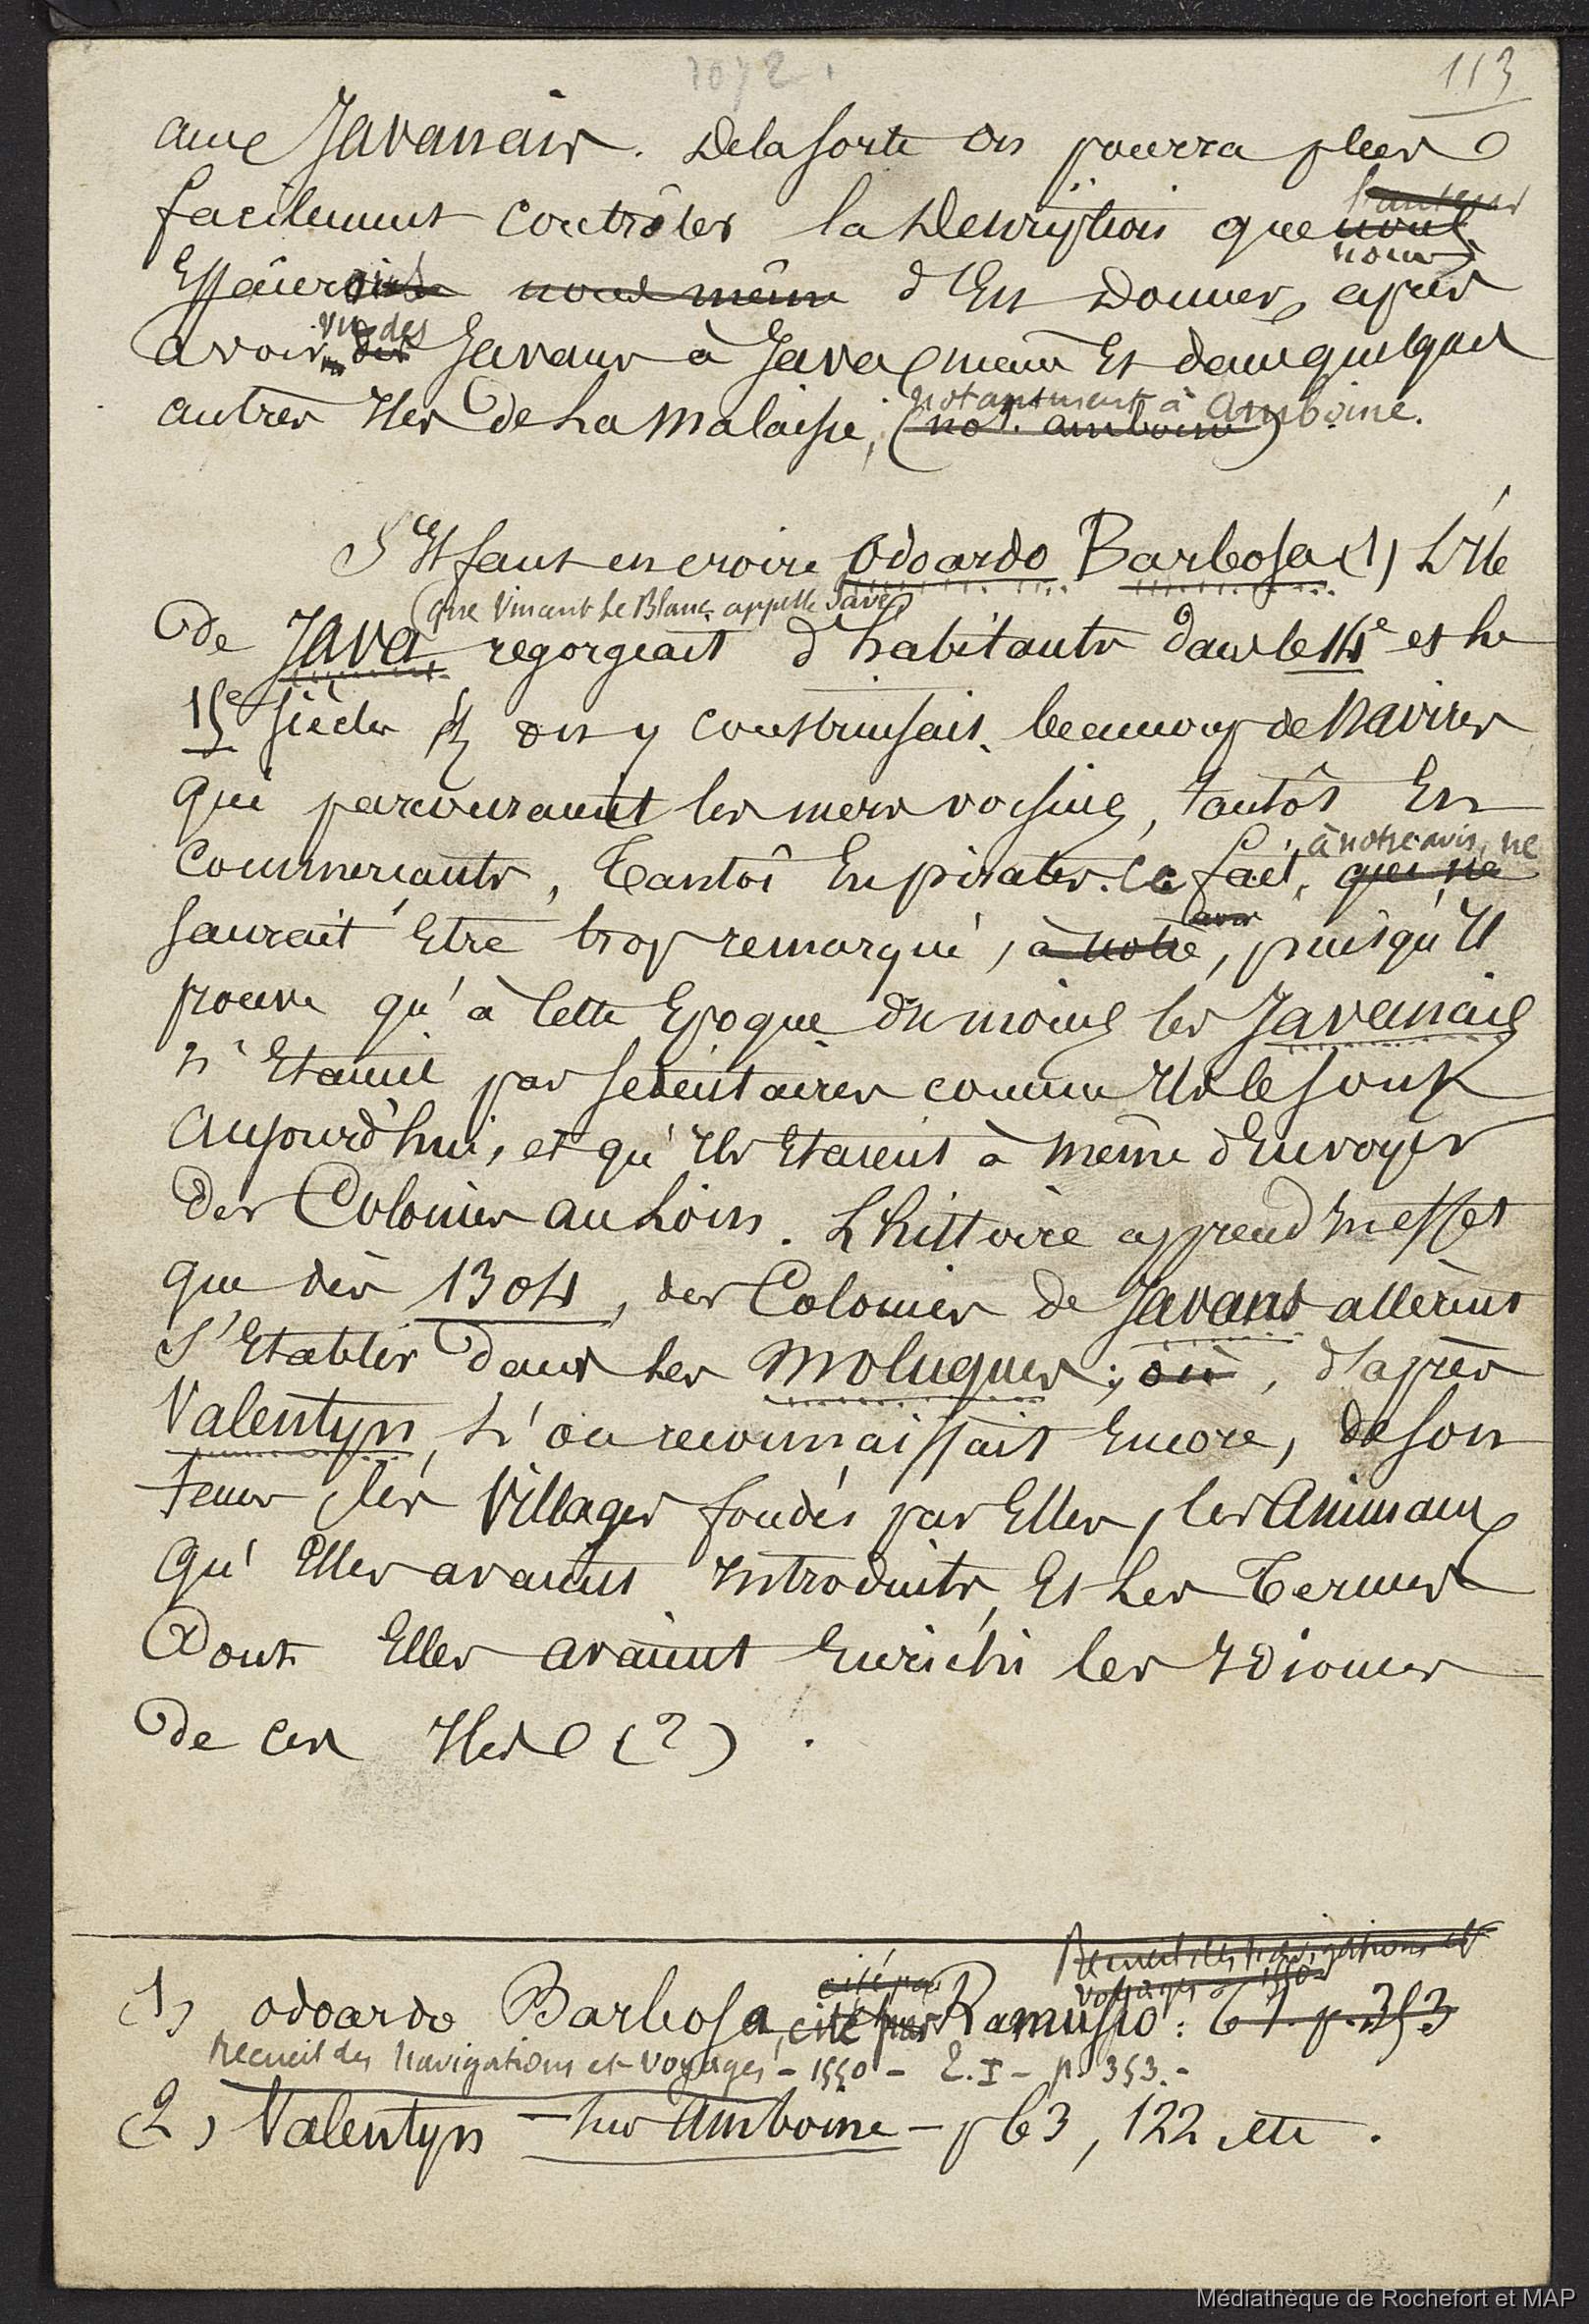 1072.
113
aux Javanais. De la sorte on pourra plus
l'auteur
facilement contrôler la Description que nous
nous
Essâierons nous même d'En Donner, après
vu des
avoir des Javans à Java même Et dans quelques
notamment à Amboine.
autres Iles de La Malaisie, (not. amboine)
S'Il faut en croire Odoardo Barbosa (1) L'Ile
(que Vincent Le Blanc appelle Jave)
de Java, regorgeait d'habitants dans le 14e et le
15e siècles, on y construisait beaucoup de Navires
qui parcouraient les mers voisines, tantôt En
à notre avis, ne
Commerçants, Tantôt En pirates. Ce fait, qui ne
avis
saurait être trop remarqué, à notre, puisqu'Il
prouve qu'à Cette Epoque du moins les Javanais
n'Etaient pas sedentaires comme Ils le sont
aujourd'hui, et qu'Ils Etaient à même d'Envoyer
des Colonies au Loin. L'histoire apprend En effet
que dès 1304, des Colonies de Javans allèrent
S'Etablir dans Les Moluques; où, d'après
Valentyn, L'on reconnaissait Encore, de son
tems, les Villages fondés par Elles, les Animaux
qu'Elles avaient Introduits, Et Les Termes
Dont Elles avaient Enrichi les Idiomes
de ces Iles (2).
Recueil des navigations et
cité par
voyages 1550
(1) Odoardo Barbosa, cité par Ramusio: t 1. p. 353
Recueil des Navigations et Voyages - 1550 - T. I - p. 353. -
(2) Valentyn - Sur Amboine - p 63, 122 etc.
Médiathèque de Rochefort et MAP